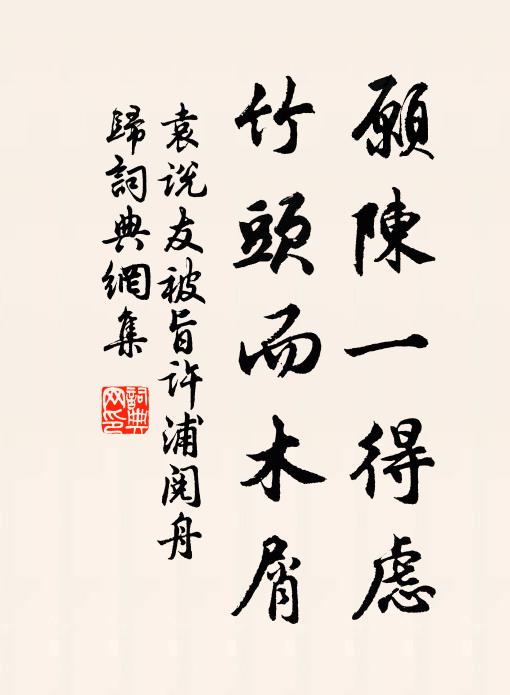 願陳一得慮
竹頭而木屑
袁说友被旨许浦阅舟
歸詞典網集
詞典
网印